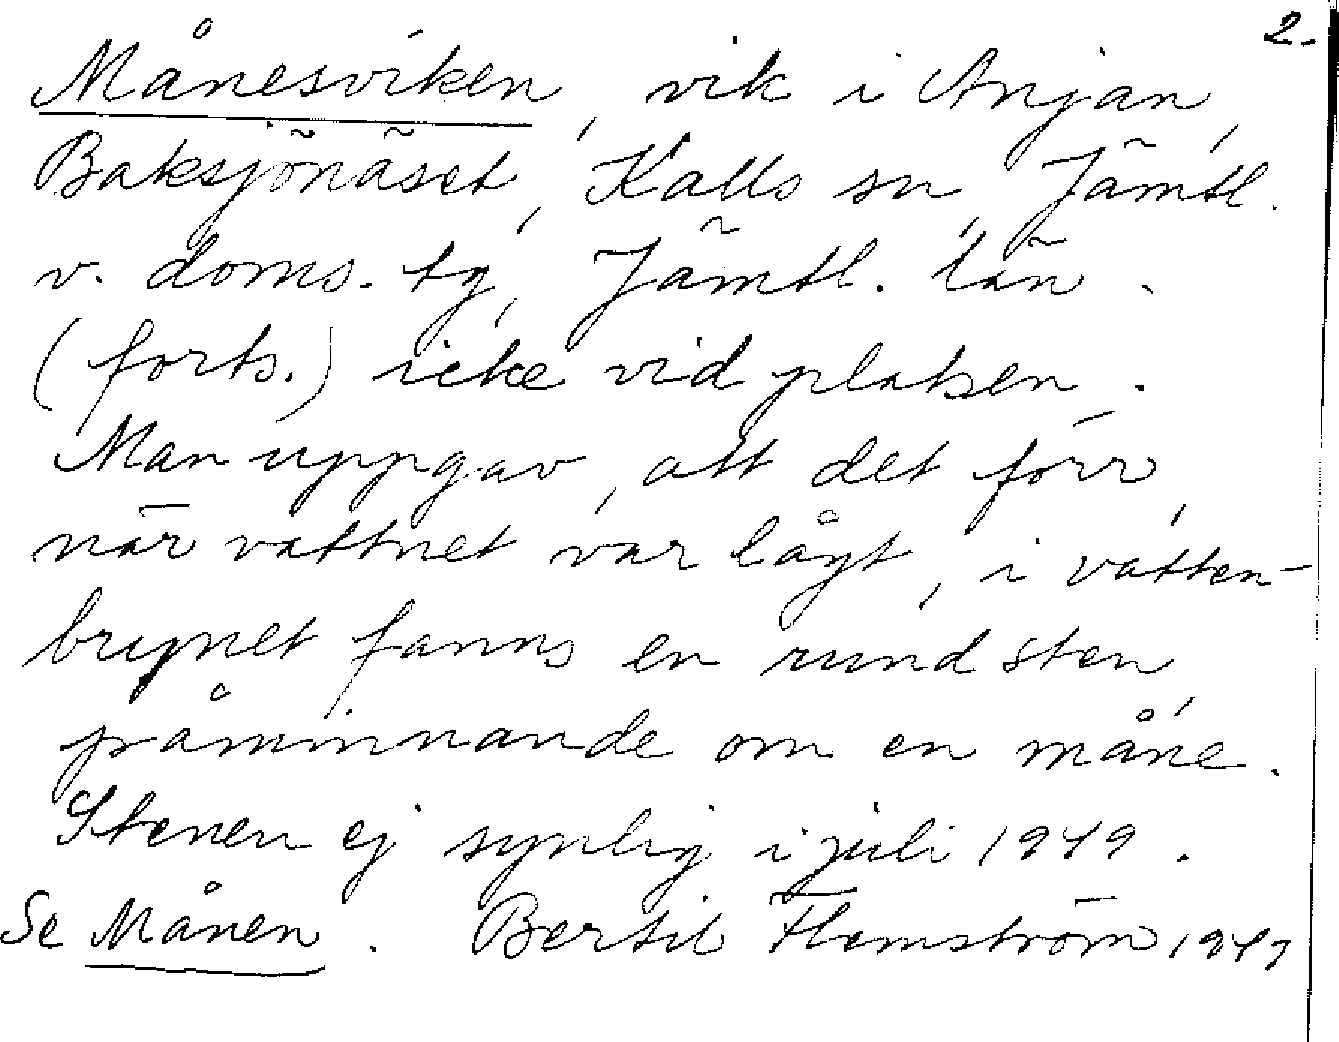 2.
Månesviken, vik i Anjan,
Baksjönäset, Kalls sn, Jämtl.
v. doms. tg, Jämtl. län.
(forts.) icke vid platsen.
Man uppgav, att det förr,
när vattnet var lågt, i vatten-
brynet fanns en rund sten,
påminnande om en måne.
Stenen ej synlig i juli 1949.
Se Månen. Bertil Flemström 1949